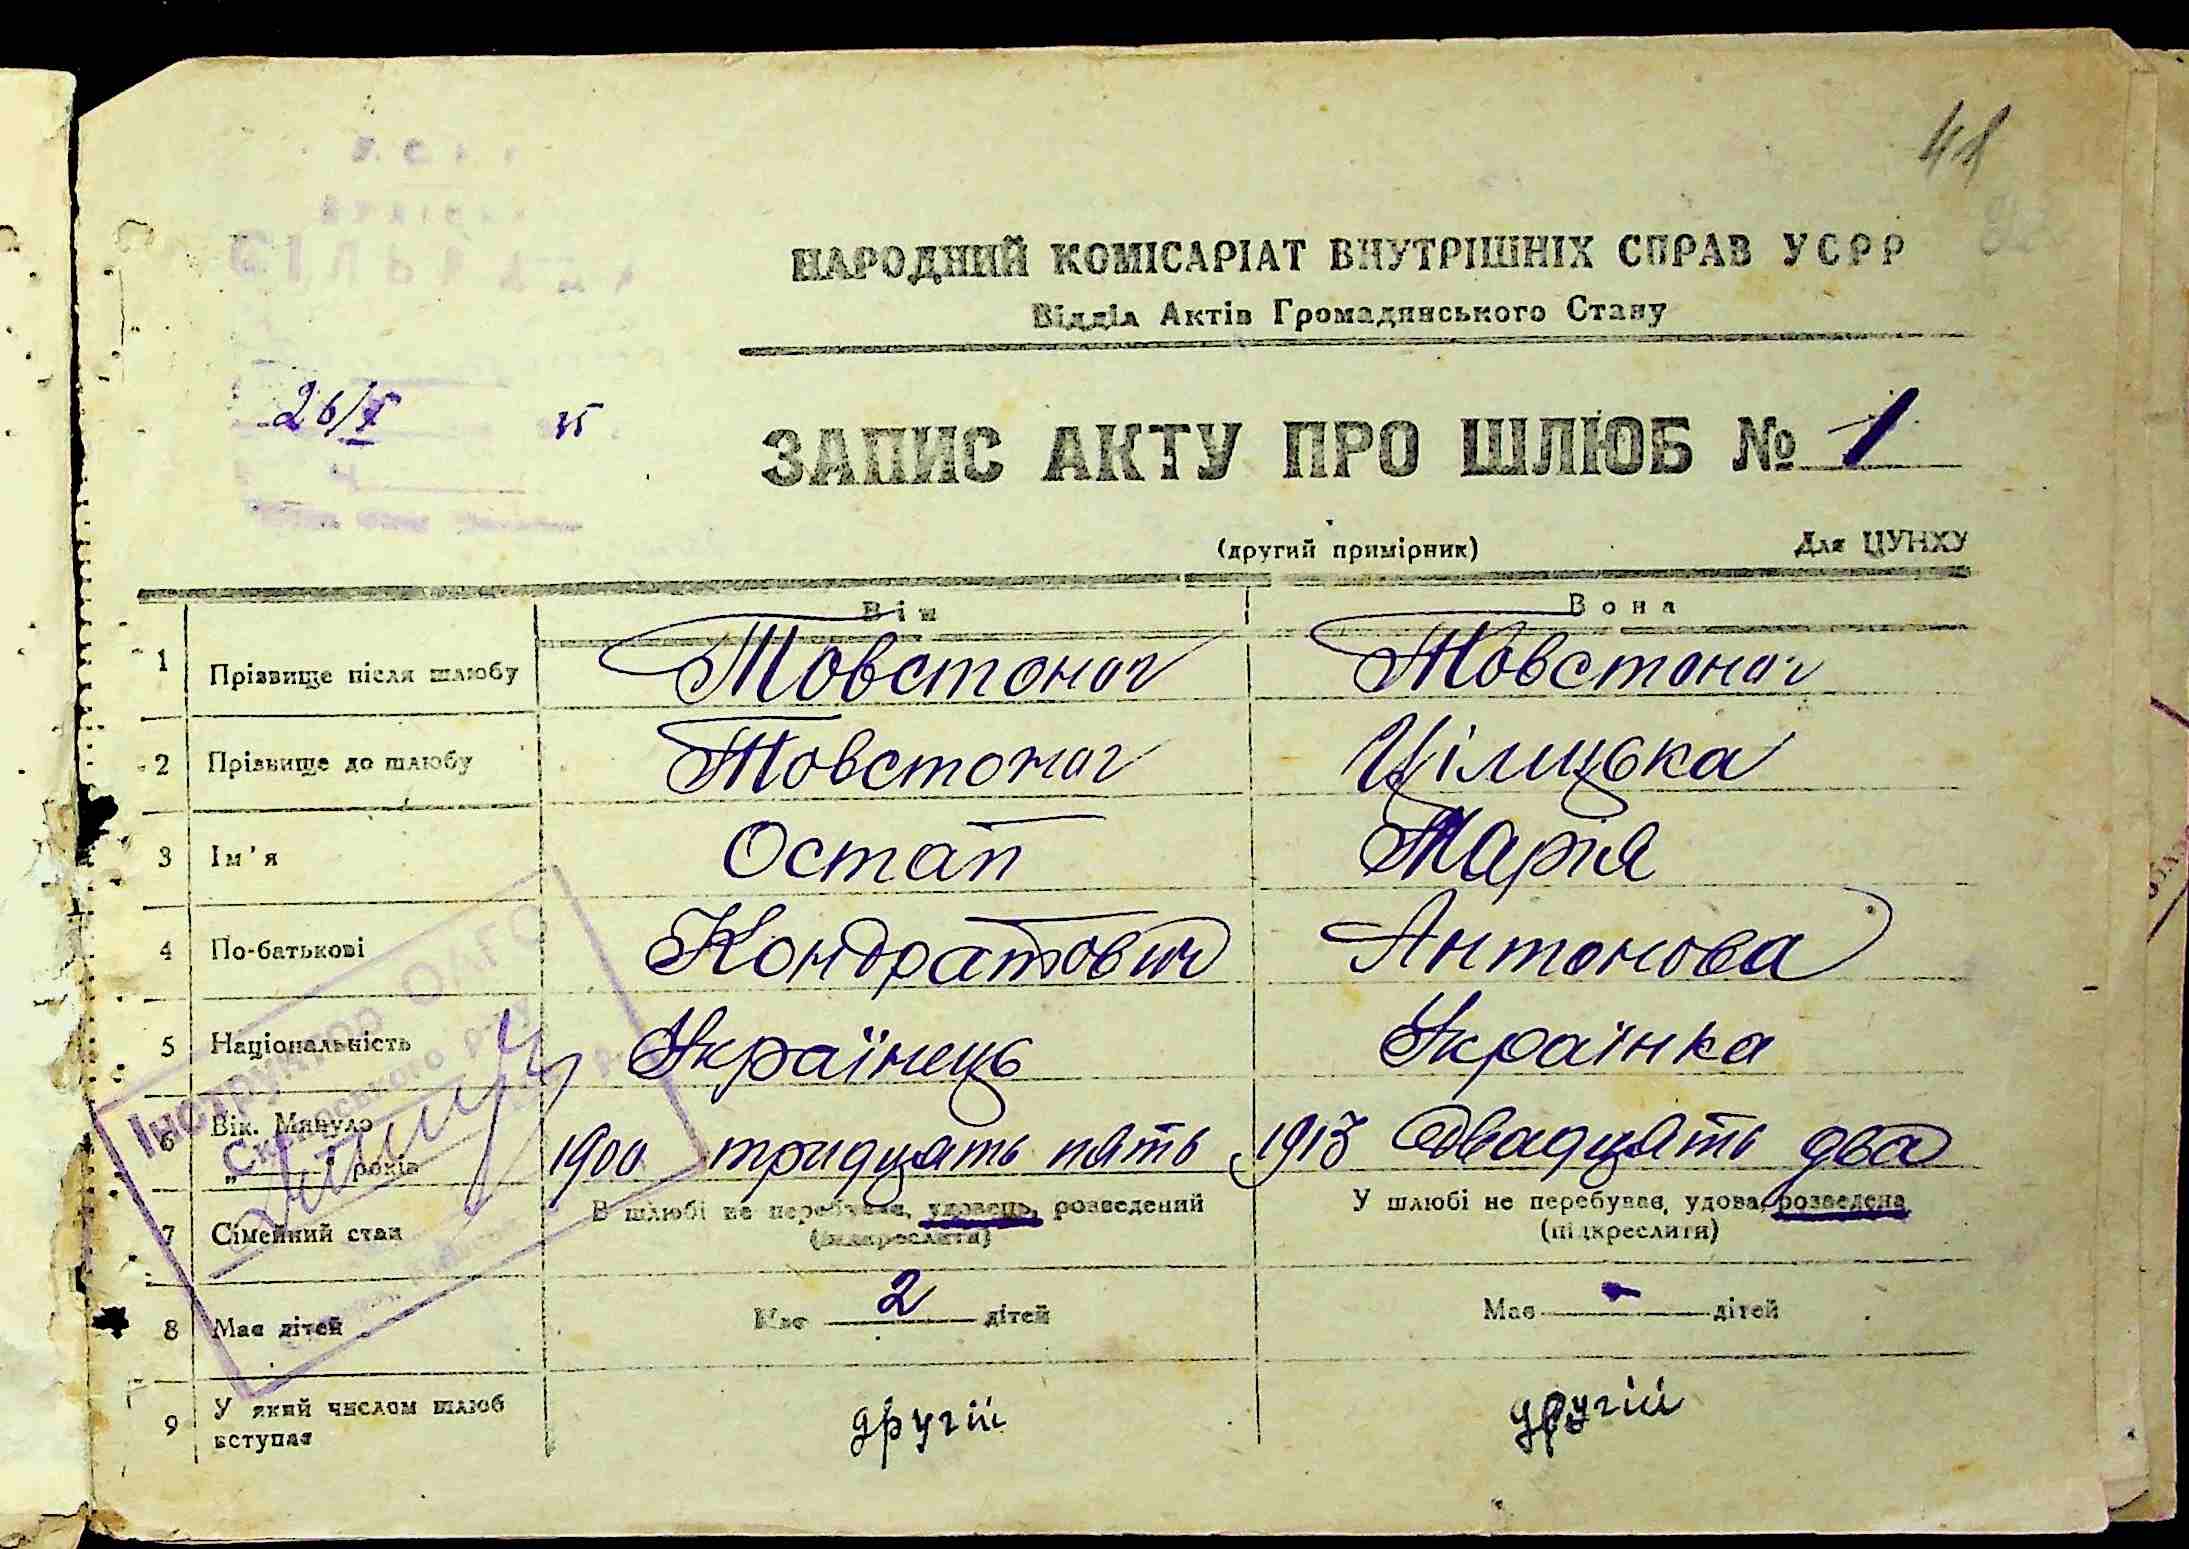 41
НАРОДНИЙ КОМІСАРІАТ ВНУТРІШНІХ СПРАВ УСРР
Відділ Актів Громадянського Стану
26/X 35
ЗАПИС АКТУ ПРО ШЛЮБ № 1
(другий примірник) Для ЦУНХУ
Він Вона
1 Прізвище після шлюбу Товстоног Товстоног
2 Прізвище до шлюбу Товстоног Цілицька
3 Ім'я Остап Марія
4 По-батькові Кондратович Антонова
5 Національність Українець Українка
6 Вік. Минуло 1900 тридцять пять 1913 двадцять два
„ років
7 Сімейний стан В шлюбі не перебував, удовець, розведений У шлюбі не перебував, удова, розведена
(підкреслити) (підкреслити)
8 Має дітей Має 2 дітей Має - дітей
9 У який числом шлюб вступає другій другій
Інструктор ОАГС